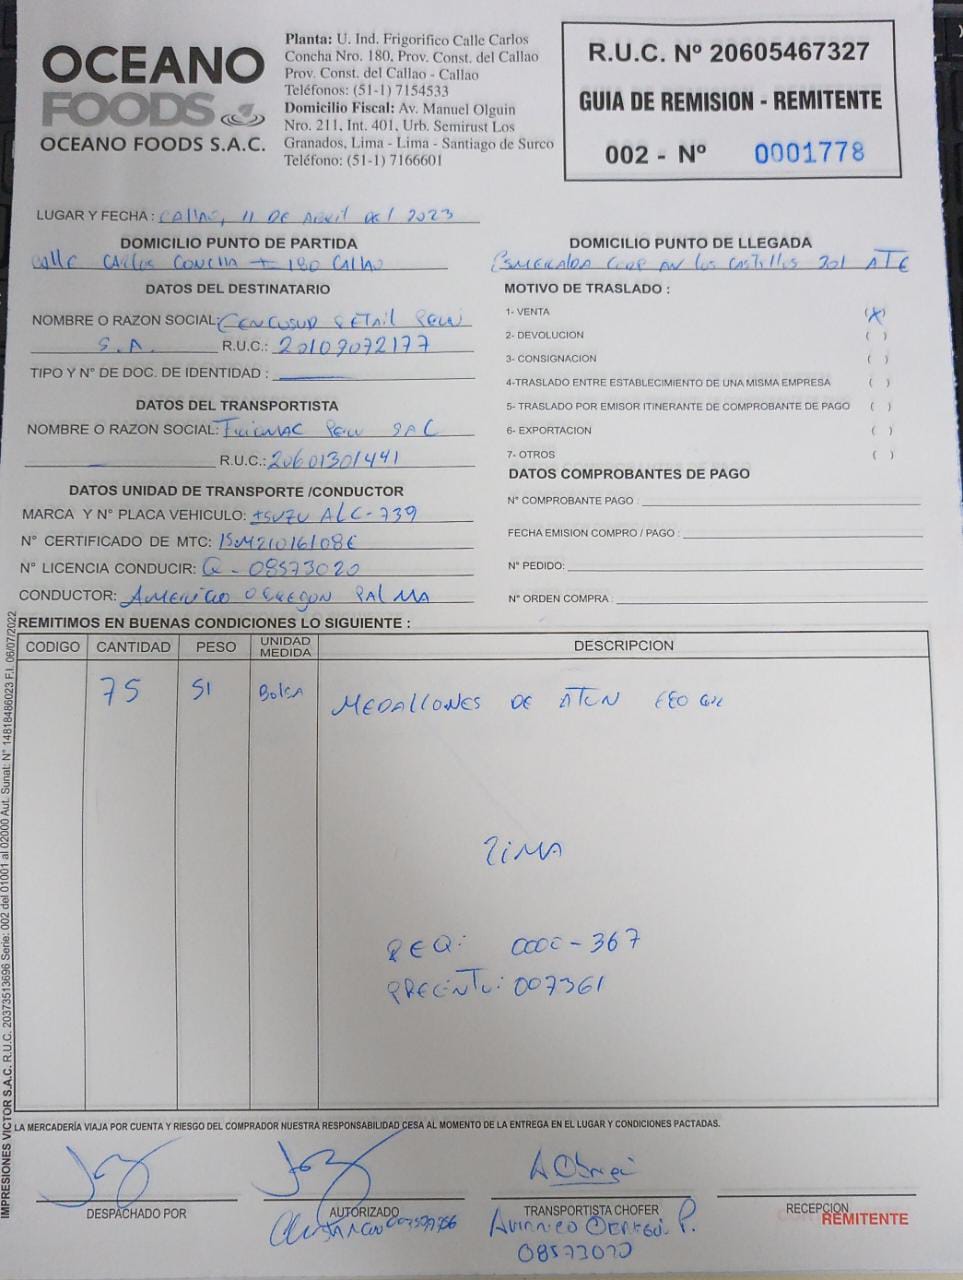 OCEANO
FOODS
OCEANO FOODS S.A.C.
Planta: U. Ind. Frigorifico Calle Carlos
Concha Nro. 180, Prov. Const. del Callao
Prov. Const. del Callao - Callao
Teléfonos: (51-1) 7154533
Domicilio Fiscal: Av. Manuel Olguin
Nro. 211, Int. 401, Urb. Semirust Los
Granados, Lima - Lima - Santiago de Surco
Teléfono: (51-1) 7166601
R.U.C. Nº 20605467327
GUIA DE REMISION - REMITENTE
002 - Nº 0001778
LUGAR Y FECHA : Callao, 11 DE Abril del 2023
DOMICILIO PUNTO DE PARTIDA
Calle Carlos Concha # 180 Callao
DOMICILIO PUNTO DE LLEGADA
Esmeralda Corp An los Castillos 201 ATE
DATOS DEL DESTINATARIO
NOMBRE O RAZON SOCIAL: Cencosud Retail Peru
S.A. R.U.C.: 20109072177
TIPO Y Nº DE DOC. DE IDENTIDAD :
DATOS DEL TRANSPORTISTA
NOMBRE O RAZON SOCIAL: Peru SAC
R.U.C.: 20601301441
DATOS UNIDAD DE TRANSPORTE /CONDUCTOR
MARCA Y Nº PLACA VEHICULO: ISUZU ALC-739
Nº CERTIFICADO DE MTC: 15M21016108E
Nº LICENCIA CONDUCIR: Q-08573020
CONDUCTOR: AMERICO OBREGON PALMA
MOTIVO DE TRASLADO :
1- VENTA (X)
2- DEVOLUCION ( )
3- CONSIGNACION ( )
4-TRASLADO ENTRE ESTABLECIMIENTO DE UNA MISMA EMPRESA ( )
5- TRASLADO POR EMISOR ITINERANTE DE COMPROBANTE DE PAGO ( )
6- EXPORTACION ( )
7- OTROS ( )
DATOS COMPROBANTES DE PAGO
Nº COMPROBANTE PAGO :
FECHA EMISION COMPRO / PAGO :
Nº PEDIDO:
Nº ORDEN COMPRA :
REMITIMOS EN BUENAS CONDICIONES LO SIGUIENTE :
CODIGO CANTIDAD PESO UNIDAD MEDIDA DESCRIPCION
75 51 Bolsa MEDALLONES DE ATUN 680 GR
ZIMA
REQ: 0000-367
PRECINTO: 007361
LA MERCADERÍA VIAJA POR CUENTA Y RIESGO DEL COMPRADOR NUESTRA RESPONSABILIDAD CESA AL MOMENTO DE LA ENTREGA EN EL LUGAR Y CONDICIONES PACTADAS.
DESPACHADO POR
AUTORIZADO
TRANSPORTISTA CHOFER
Americo Obregon P.
08573020
RECEPCION
REMITENTE
IMPRESIONES VICTOR S.A.C. R.U.C. 20373513696 Serie: 002 del 01001 al 02000 Aut. Sunat: Nº 14818486023 F.I. 06/07/2022